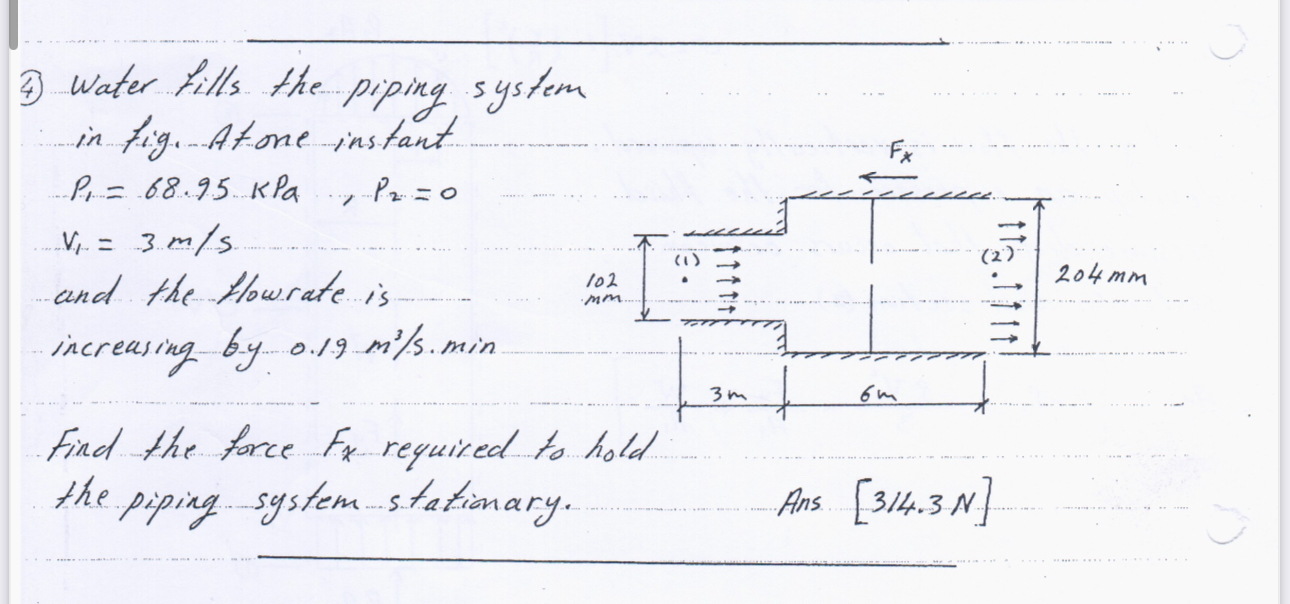 ④ Water fills the piping system
in fig. At one instant
P₁ = 68.95 KPa , P₂ = 0
V₁ = 3 m/s
and the flowrate is
increasing by 0.19 m³/s.min
Fx
(1)
(2)
102
mm
204 mm
3m
6m
Find the force Fx required to hold
the piping system stationary.
Ans [314.3 N]